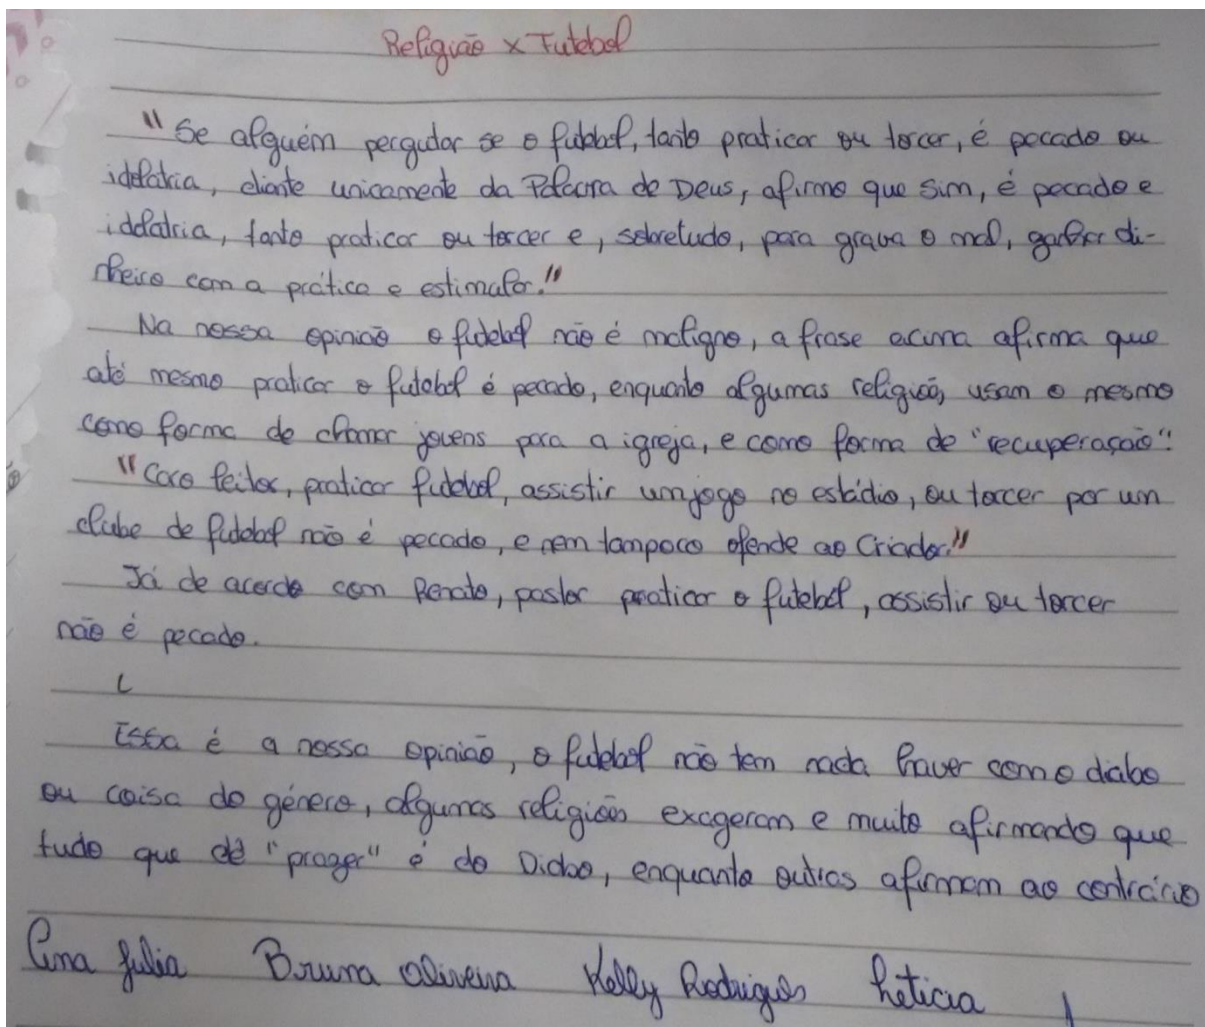 Religião x Futebol
"Se alguém pergutar se o futebol, tanto praticar ou torcer, é pecado ou
idolatria, diante unicamente da Palavra de Deus, afirmo que sim, é pecado e
idolatria, tanto praticar ou torcer e, sobretudo, para grava o mal, ganhar di-
nheiro com a prática e estimular."
Na nossa opinião o futebol não é maligno, a frase acima afirma que
até mesmo praticar o futebol é pecado, enquanto algumas religiões usam o mesmo
como forma de chamar jovens para a igreja, e como forma de "recuperação".
"Caro leitor, praticar futebol, assistir um jogo no estádio, ou torcer por um
clube de futebol não é pecado, e nem tampoco ofende ao Criador."
Já de acordo com Renato, pastor praticar o futebol, assistir ou torcer
não é pecado.
Essa é a nossa opinião, o futebol não tem nada haver com o diabo
ou coisa do género, algumas religiões exageram e muito afirmando que
tudo que dê "prazer" é do Diabo, enquanto outras afirmam ao contrário
Ana Julia Bruna Oliveira Kelly Rodrigues Leticia